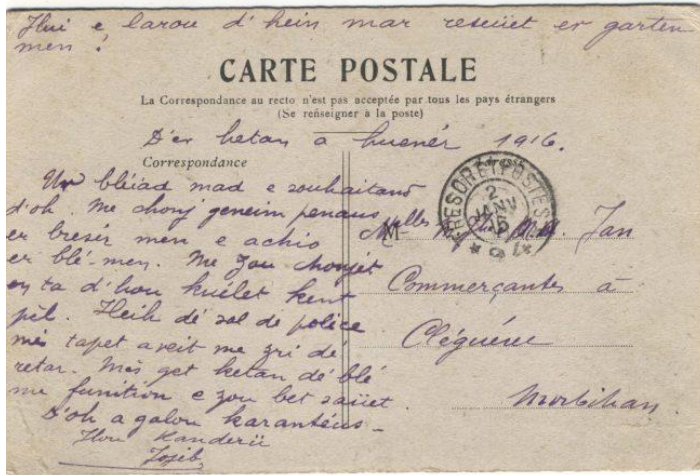 Hui e larou d'hein mar resèuet er garten
men.
CARTE POSTALE
La Correspondance au recto n'est pas acceptée par tous les pays étrangers
(Se renseigner à la poste)
D'er hetan a huenér 1916.
Correspondance
Ur bléiad mad e souhaitand
d'oh. Me chonj geneim penaus
er bresér men e achio
er blé-men. Me zou chonjét
en ta d'hou kuélet kent
pèl. Heih dé sal de police
mès tapet aveit me zri dé
retar. Mès get ketan dé blé
me funition e zou bet saüet.
D'oh a galon karantéus_
Hou Kanderü
Jojeb
TRESOR ET POSTES
2
JANV
* 91 *
Melles M. Jan
Commerçantes à
Cléguérec
Morbihan